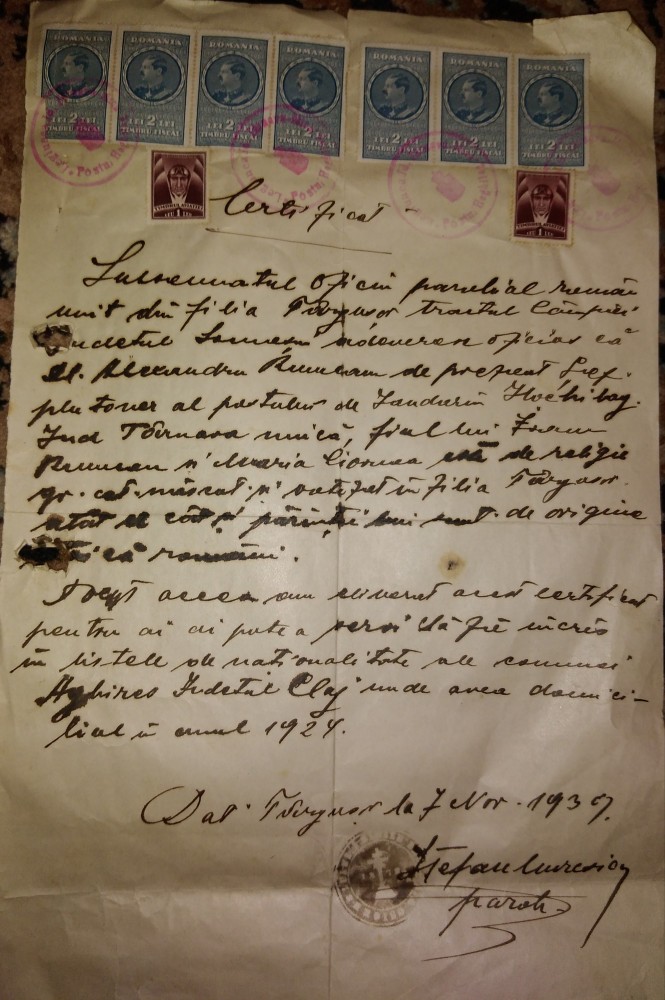 ROMANIA ROMANIA ROMANIA ROMANIA ROMANIA ROMANIA ROMANIA
LEI 2 LEI LEI 2 LEI LEI 2 LEI LEI 2 LEI LEI 2 LEI LEI 2 LEI LEI 2 LEI
TIMBRU FISCAL TIMBRU FISCAL TIMBRU FISCAL TIMBRU FISCAL TIMBRU FISCAL TIMBRU FISCAL TIMBRU FISCAL
TIMBRUL AVIATIEI TIMBRUL AVIATIEI
LEU 1 LEU LEU 1 LEU
Certificat
Subsemnatul oficiu parohial român
unit din filia Târgușor tractul
județul Someș adeveresc oficios că
dl. Alexandru de prezent Șef
plutoner al postului de Jandarmi
Jud Târnava mică, fiul lui
și Maria de religie
gr. cat. născut și botezat în filia Târgușor
atât el cât și părinții lui sunt de origine
română.
Drept aceea am eliberat acest certificat
pentru ai putea servi să fie înscris
în listele de naționalitate ale comunei
Aghireș Județul Cluj unde avea domici-
liul în anul 1924.
Dat Târgușor la 7 Nov. 1939.
Ștefan
paroh